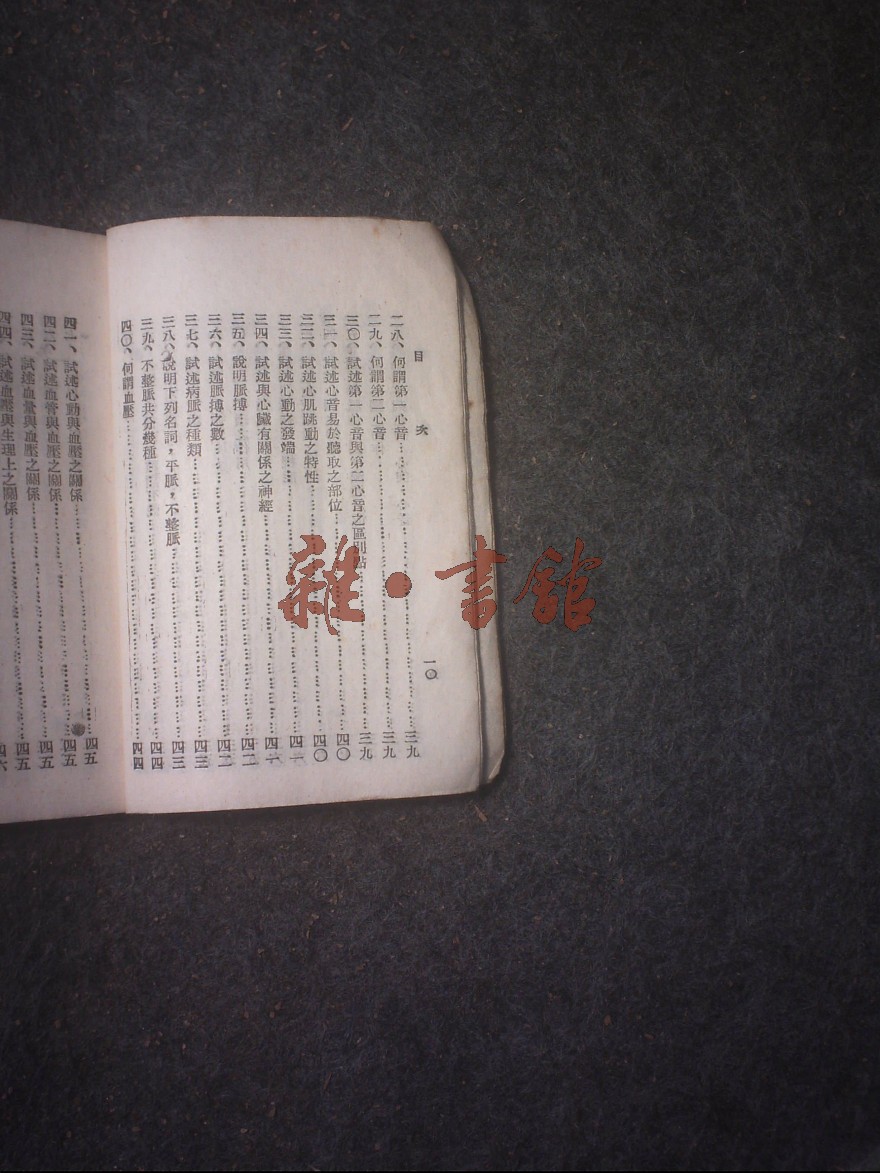 目次
二八、何謂第一心音……三九
二九、何謂第二心音……三九
三〇、試述第一心音與第二心音之區別點……三九
三一、試述心音易於聽取之部位……四〇
三二、試述心肌跳動之特性……四〇
三三、試述心動之發端……四一
三四、試述與心臟有關係之神經……四一
三五、說明脈搏……四二
三六、試述脈搏之數……四二
三七、試述病脈之種類……四三
三八、說明下列名詞，平脈，不整脈……四三
三九、不整脈共分幾種……四四
四〇、何謂血壓……四四
一〇
四一、試述心動與血壓之關係……四五
四二、試述血管與血壓之關係……四五
四三、試述血量與血壓之關係……四五
四四、試述血壓與生理上之關係……四六
雜·書館